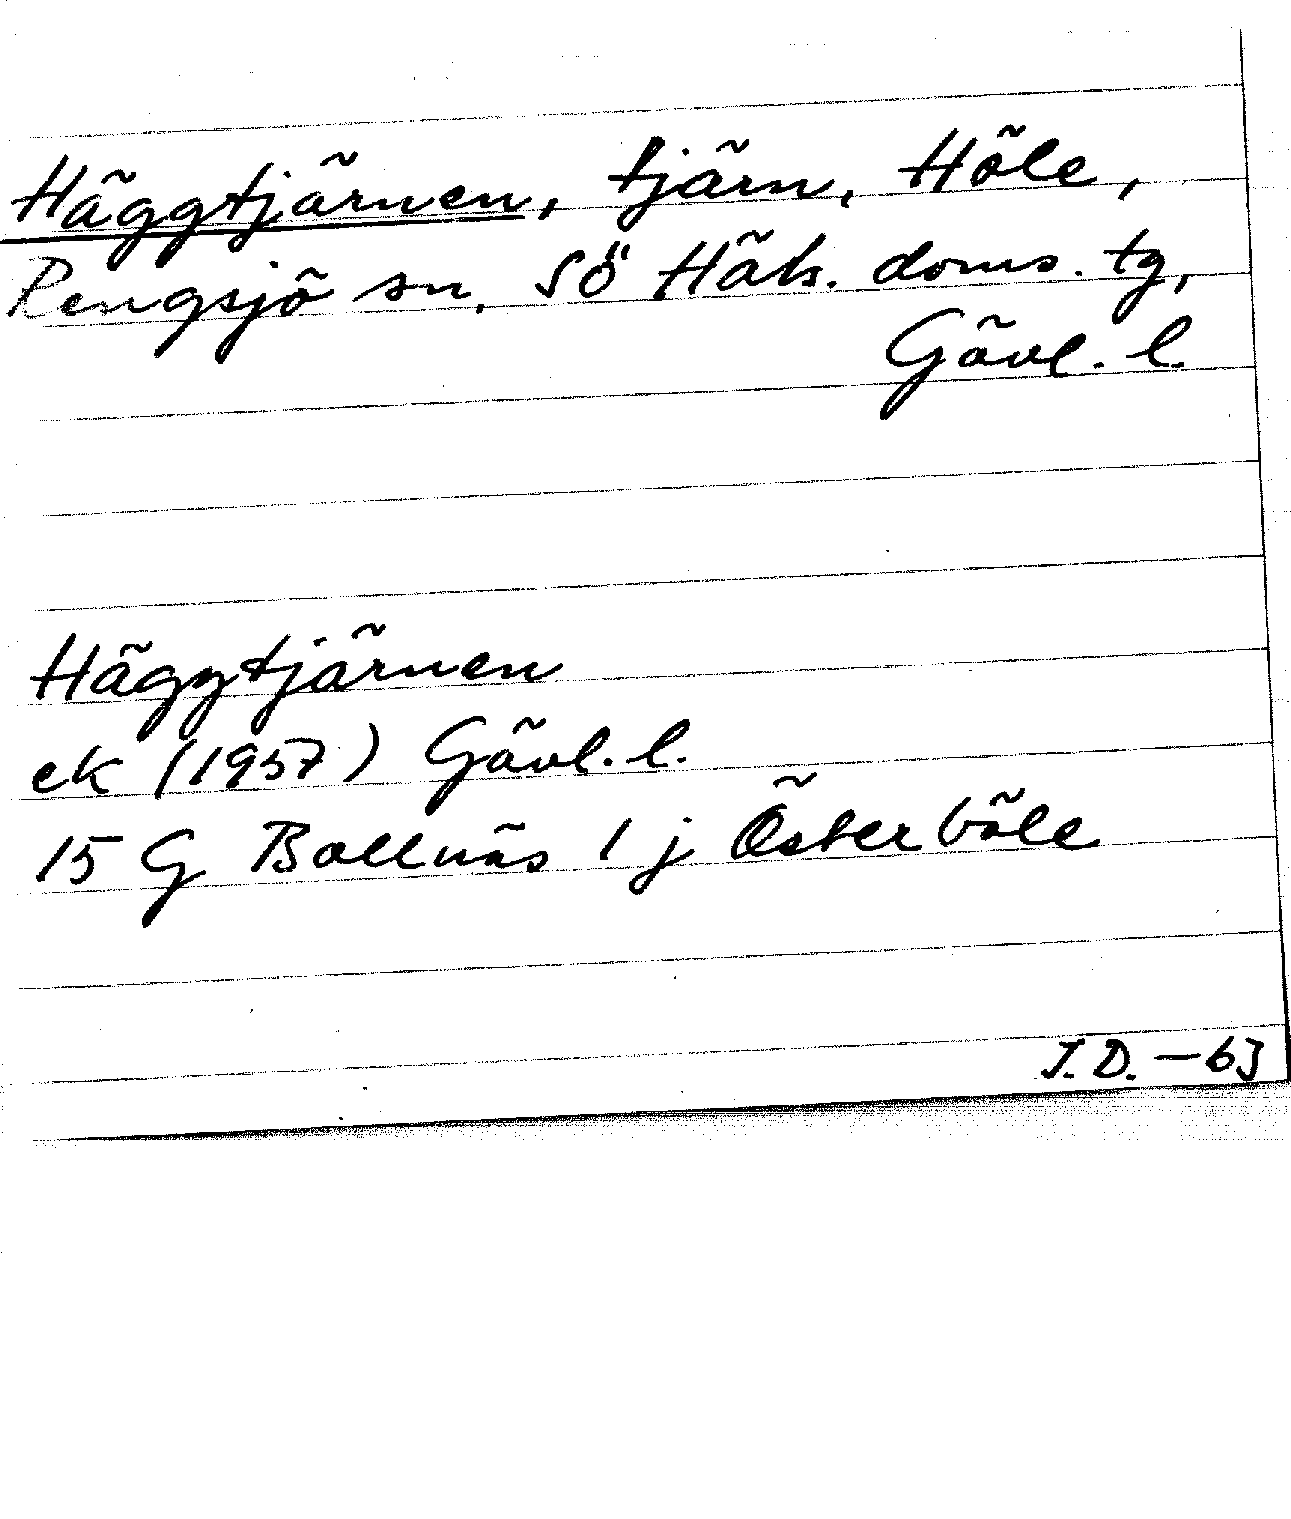 Häggtjärnen, tjärn, Höle,
Rengsjö sn, SÖ Häls. doms. tg,
Gävl. l.
Häggtjärnen
ek (1957) Gävl. l.
15 G Bollnäs 1 j Österböle
J.D. – 63